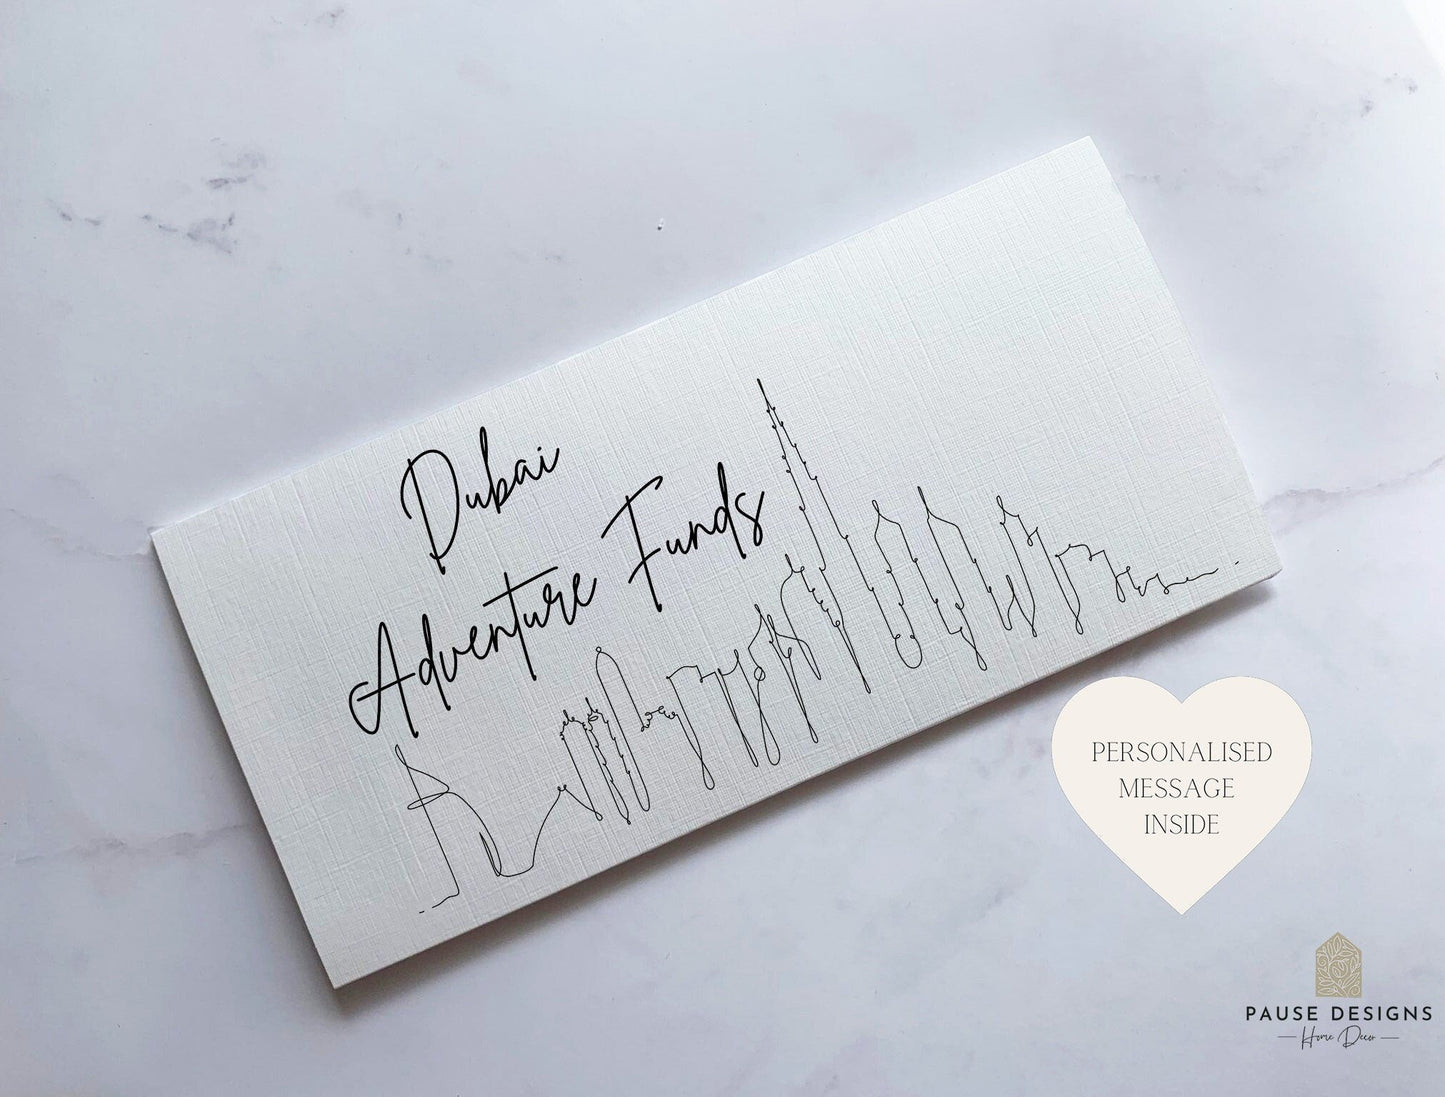 Dubai
Adventure Funds
PERSONALISED
MESSAGE
INSIDE
PAUSE DESIGNS
Home Decor